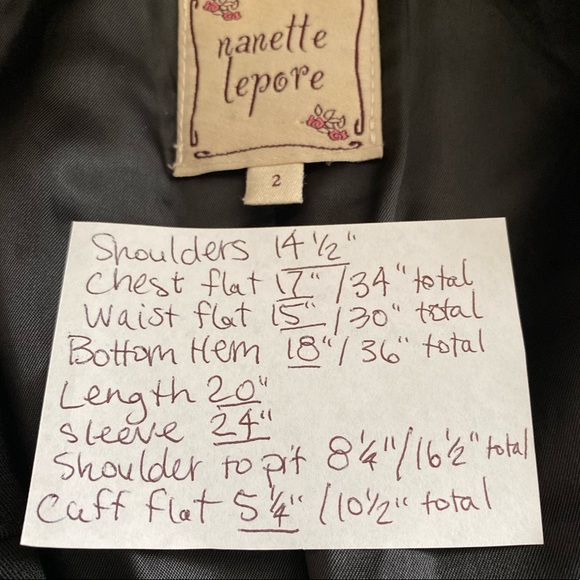 nanette
lepore
2
Shoulders 14 1/2"
Chest flat 17" / 34" total
Waist flat 15" / 30" total
Bottom Hem 18" / 36" total
Length 20"
Sleeve 24"
Shoulder to pit 8 1/4" / 16 1/2" total
Cuff flat 5 1/4" / 10 1/2" total